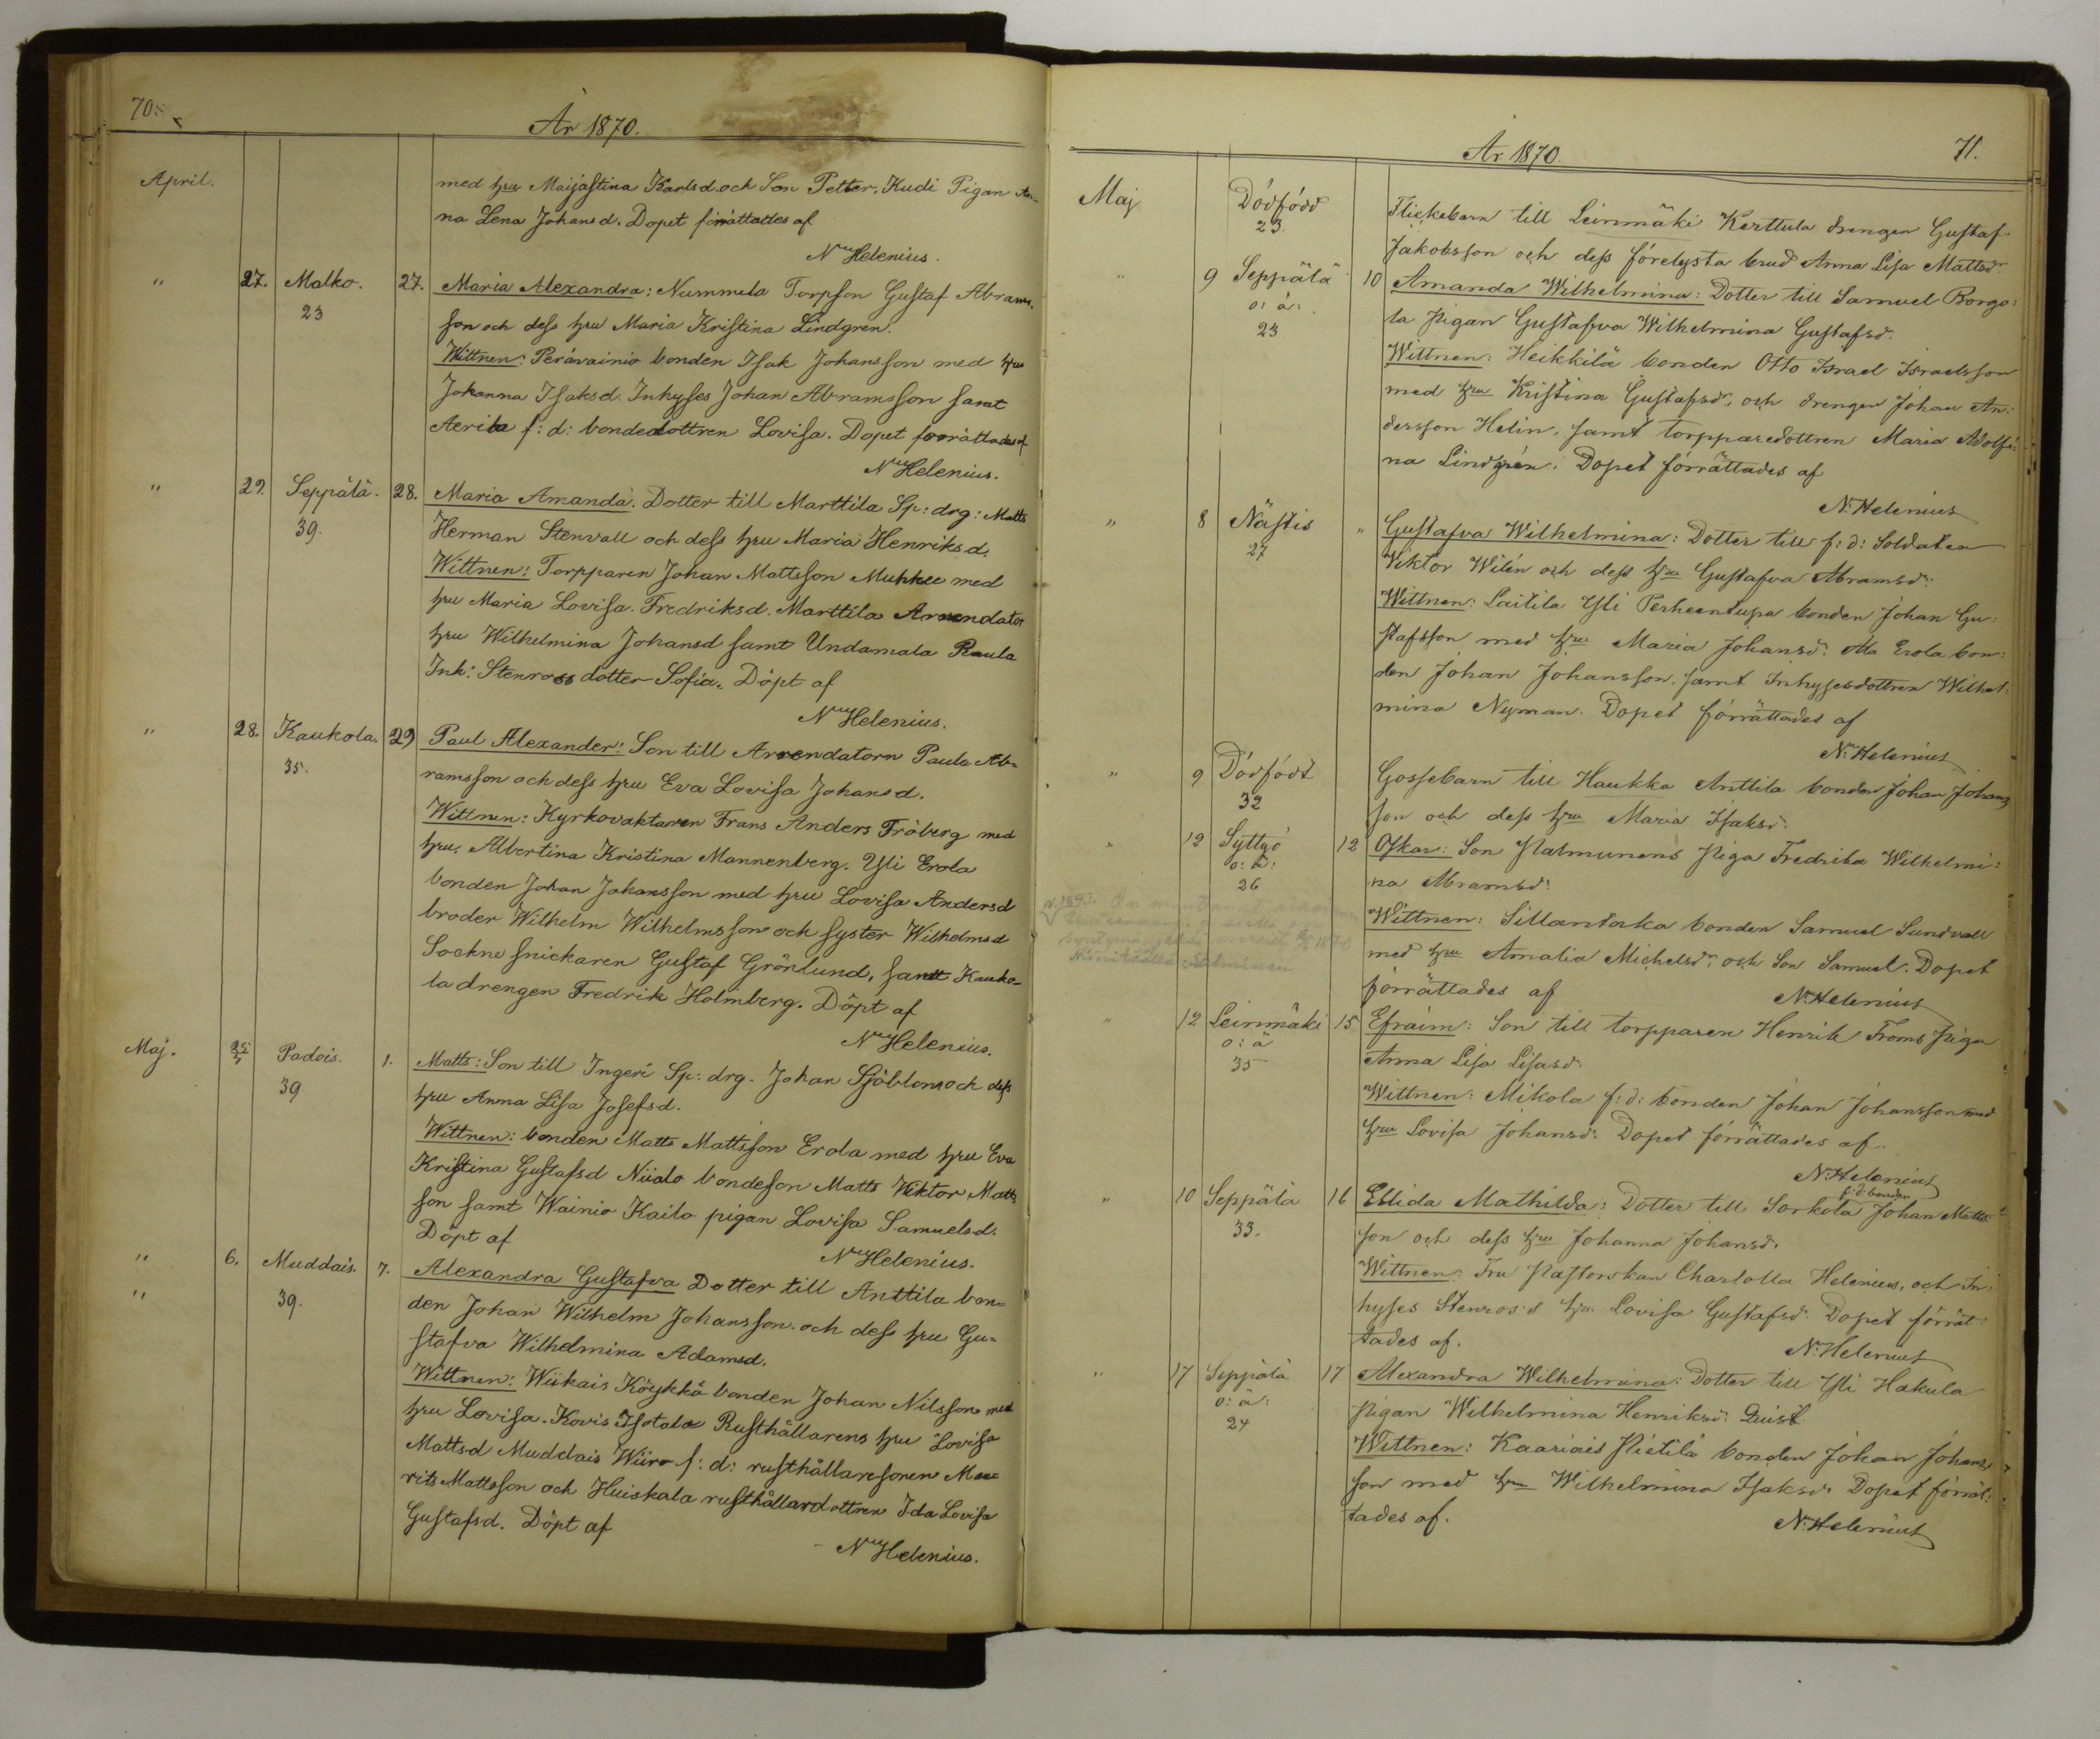 70.
År 1870.
April.
med hru Maijastina Karlsd. och Son Petter. Kudi Pigan An-
na Lena Johansd. Dopet förrättades af
N Helenius.
" 27. Malko. 27. Maria Alexandra: Nummela Torpson Gustaf Abrams-
23 son och dess hru Maria Kristina Lindgren.
Wittnen: Perävainio bonden Isak Johansson med hru
Johanna Isaksd. Inhyses Johan Abramsson samt
f: d: bondedottren Lovisa. Dopet förrättades af
N Helenius.
" 29. Seppälä. 28. Maria Amanda. Dotter till Marttila Sp: drg: Matts
39. Herman Stenvall och dess hru Maria Henriksd.
Wittnen: Torpparen Johan Mattsson med
hru Maria Lovisa. Fredriksd. Marttila Arrendator
hru Wilhelmina Johansd samt Undamala Raula
Inh: Stenross dotter Sofia. Döpt af
N Helenius.
" 28. Kaukola. 29 Paul Alexander: Son till Arrendatorn Paula Ab-
35. ramsson och dess hru Eva Lovisa Johansd.
Wittnen: Kyrkovaktaren Frans Anders Fröberg med
hru. Albertina Kristina Mannenberg. Yli Erola
bonden Johan Johansson med hru Lovisa Andersd
broder Wilhelm Wilhelmsson och syster Wilhelmsd
Sockne snickaren Gustaf Grönlund, samt Kauko-
la drengen Fredrik Holmberg. Döpt af
N Helenius.
Maj. 25/4 Padois. 1. Matts: Son till Ingeri Sp: drg. Johan Sjöblom och dess
39 hru Anna Lisa Josefsd.
Wittnen: bonden Matts Mattsson Erola med hru Eva
Kristina Gustafsd Niialo bondeson Matts Viktor Matts
son samt Wainio Kailo pigan Lovisa Samuelsd.
Döpt af
N Helenius.
" 6. Muddais. 7. Alexandra Gustafva Dotter till Anttila bon-
" 39. den Johan Wilhelm Johansson. och dess hru Gu-
stafva Wilhelmina Adamsd.
Wittnen: Wiikais Köykkä bonden Johan Nilsson med
hru Lovisa. Kovis Isotalo Rusthållarens hru Lovisa
Mattsd Muddais Wiiro f: d: rusthållaresonen Mau-
rits Mattsson och Huiskala rusthållardottren Ida Lovisa
Gustafsd. Döpt af
N Helenius.
År 1870. 71.
Maj Dödfödd Flickebarn till Leinmäki Kerttula drengen Gustaf
23 Jakobsson och dess förelysta brud Anna Lisa Mattsdr
" 9 Seppälä 10 Amanda Wilhelmina: Dotter till Samuel Borgo:
o: ä: la pigan Gustafva Wilhelmina Gustafsd.
23
Wittnen: Heikkilä bonden Otto Israel Israelsson
med hru Kristina Gustafsdr. och drengen Johan An:
dersson Helin. samt torpparedottren Maria Adolfi:
na Lindgrén. Dopet förrättades af
N. Helenius
" 8 Nästis " Gustafva Wilhelmina: Dotter till f: d: Soldaten
27 Viktor Wilén och dess hru Gustafva Abramsdr:
Wittnen: Laitila Yli Perheentupa bonden Johan Gu:
stafsson med hru Maria Johansd. Ala Erola bon:
den Johan Johansson. samt Inhysesdottren Wilhel:
mina Nyman. Dopet förrättades af
N. Helenius
" 9 Dödfödt Gossebarn till Haukka Anttila bonden Johan Johans
32 son och dess hru Maria Isaksd.
" 12 Syttyö 12 Oskar: Son Palmunens Piga Fredrika Wilhelmi:
o: ä: na Abramsd.
26
Wittnen: Sillantaka bonden Samuel Sundvall
med hru Amalia Michelsdr. och Son Samuel. Dopet
förrättades af N. Helenius
" 12 Leinmäki 15 Efraim: Son till torpparen Henrik Froms Piga
o: ä Anna Lisa Lisasd.
35
Wittnen: Mikola f: d: bonden Johan Johansson med
hru Lovisa Johansd. Dopet förrättades af.
N. Helenius
" 10 Seppälä 16 Ellida Mathilda: Dotter till Sorkola f: d: bonden Johan Matts
33. son och dess hru Johanna Johansd.
Wittnen: Fru Pastorskan Charlotta Helenius, och In:
hyses Stenros's hru Lovisa Gustafsd. Dopet förrät:
tades af. N. Helenius
" 17 Seppälä 17 Alexandra Wilhelmina: Dotter till Yli Hakula
o: ä: pigan Wilhelmina Henriksd. Quist
24
Wittnen: Kaariais Pietilä bonden Johan Johans
son med hru Wilhelmina Isaksd. Dopet förrät:
tades af. N. Helenius